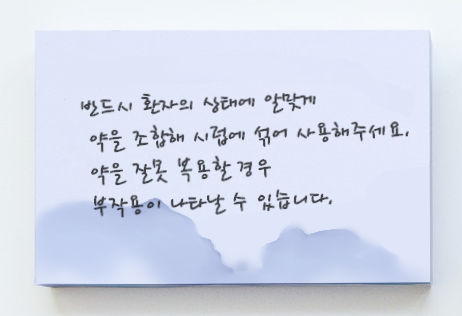 반드시 환자의 상태에 알맞게
약을 조합해 시럽에 섞어 사용해주세요.
약을 잘못 복용할 경우
부작용이 나타날 수 있습니다.